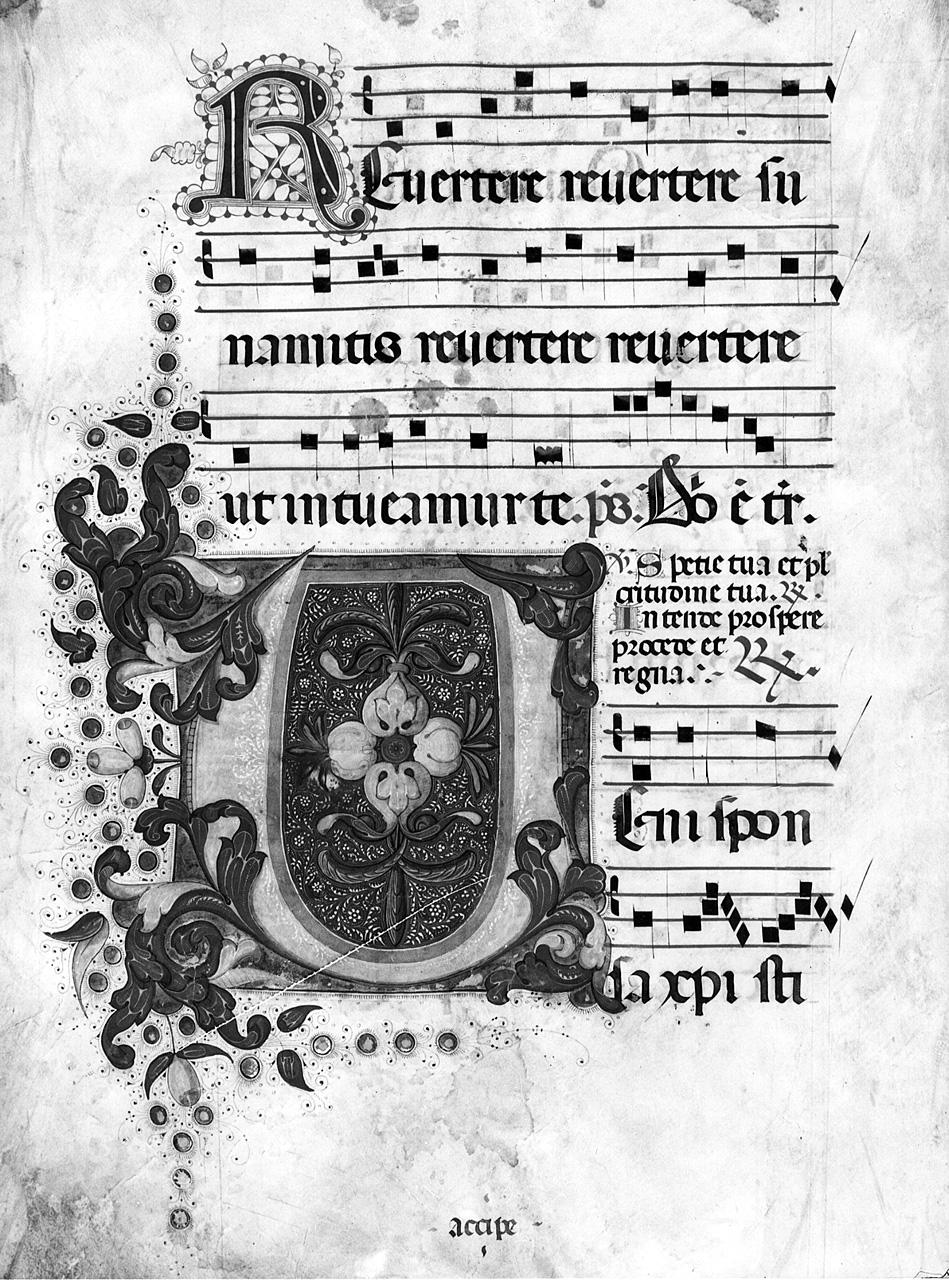 REuertere reuertere su
namitis reuertere reuertere
ut intueamur te. ps. Dñs ē tr̄.
V. Spetie tua et pul
critudine tua. R.
Intende prospere
procede et
regna. R.
Ueni spon
sa xpisti
accipe